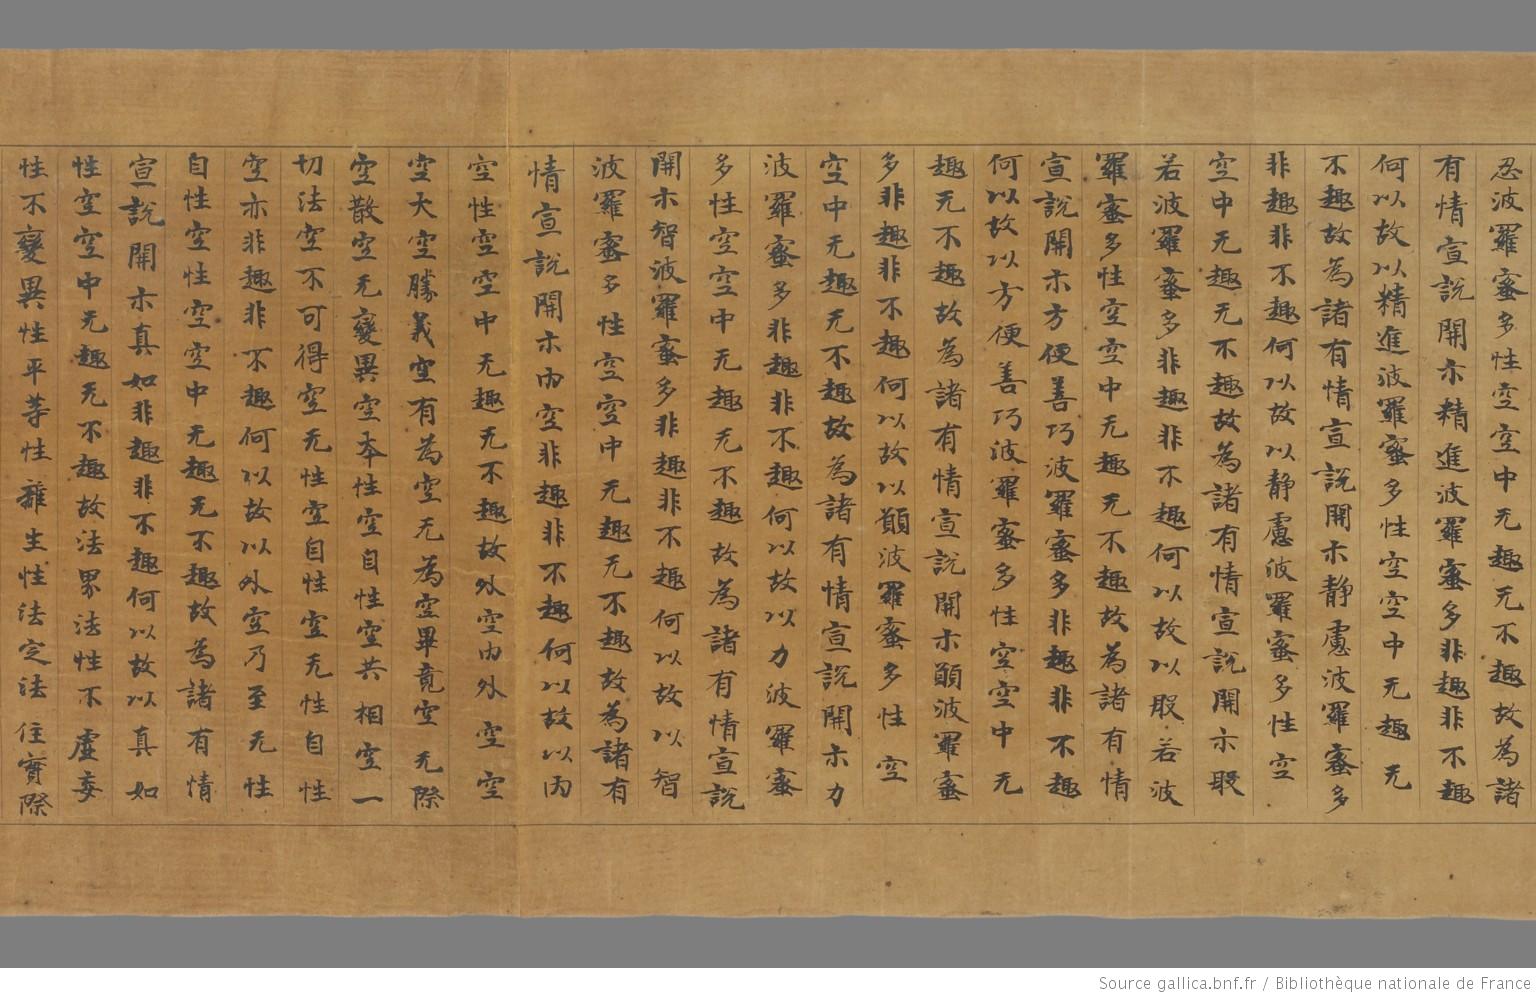 忍波羅蜜多性空空中无趣无不趣故為諸
有情宣說開示精進波羅蜜多非趣非不趣
何以故以精進波羅蜜多性空空中无趣无
不趣故為諸有情宣說開示静慮波羅蜜多
非趣非不趣何以故以静慮波羅蜜多性空
空中无趣无不趣故為諸有情宣說開示般
若波羅蜜多非趣非不趣何以故以般若波
羅蜜多性空空中无趣无不趣故為諸有情
宣說開示方便善巧波羅蜜多非趣非不趣
何以故以方便善巧波羅蜜多性空空中无
趣无不趣故為諸有情宣說開示願波羅蜜
多非趣非不趣何以故以願波羅蜜多性空
空中无趣无不趣故為諸有情宣說開示力
波羅蜜多非趣非不趣何以故以力波羅蜜
多性空空中无趣无不趣故為諸有情宣說
開示智波羅蜜多非趣非不趣何以故以智
波羅蜜多性空空中无趣无不趣故為諸有
情宣說開示內空非趣非不趣何以故以內
空性空空中无趣无不趣故外空內外空空
空大空勝義空有為空无為空畢竟空无際
空散空无變異空本性空自性空共相空一
切法空不可得空无性空自性空无性自性
空亦非趣非不趣何以故以外空乃至无性
自性空性空空中无趣无不趣故為諸有情
宣說開示真如非趣非不趣何以故以真如
性空空中无趣无不趣故法界法性不虛妄
性不變異性平等性離生性法定法住實際
Source gallica.bnf.fr / Bibliothèque nationale de France